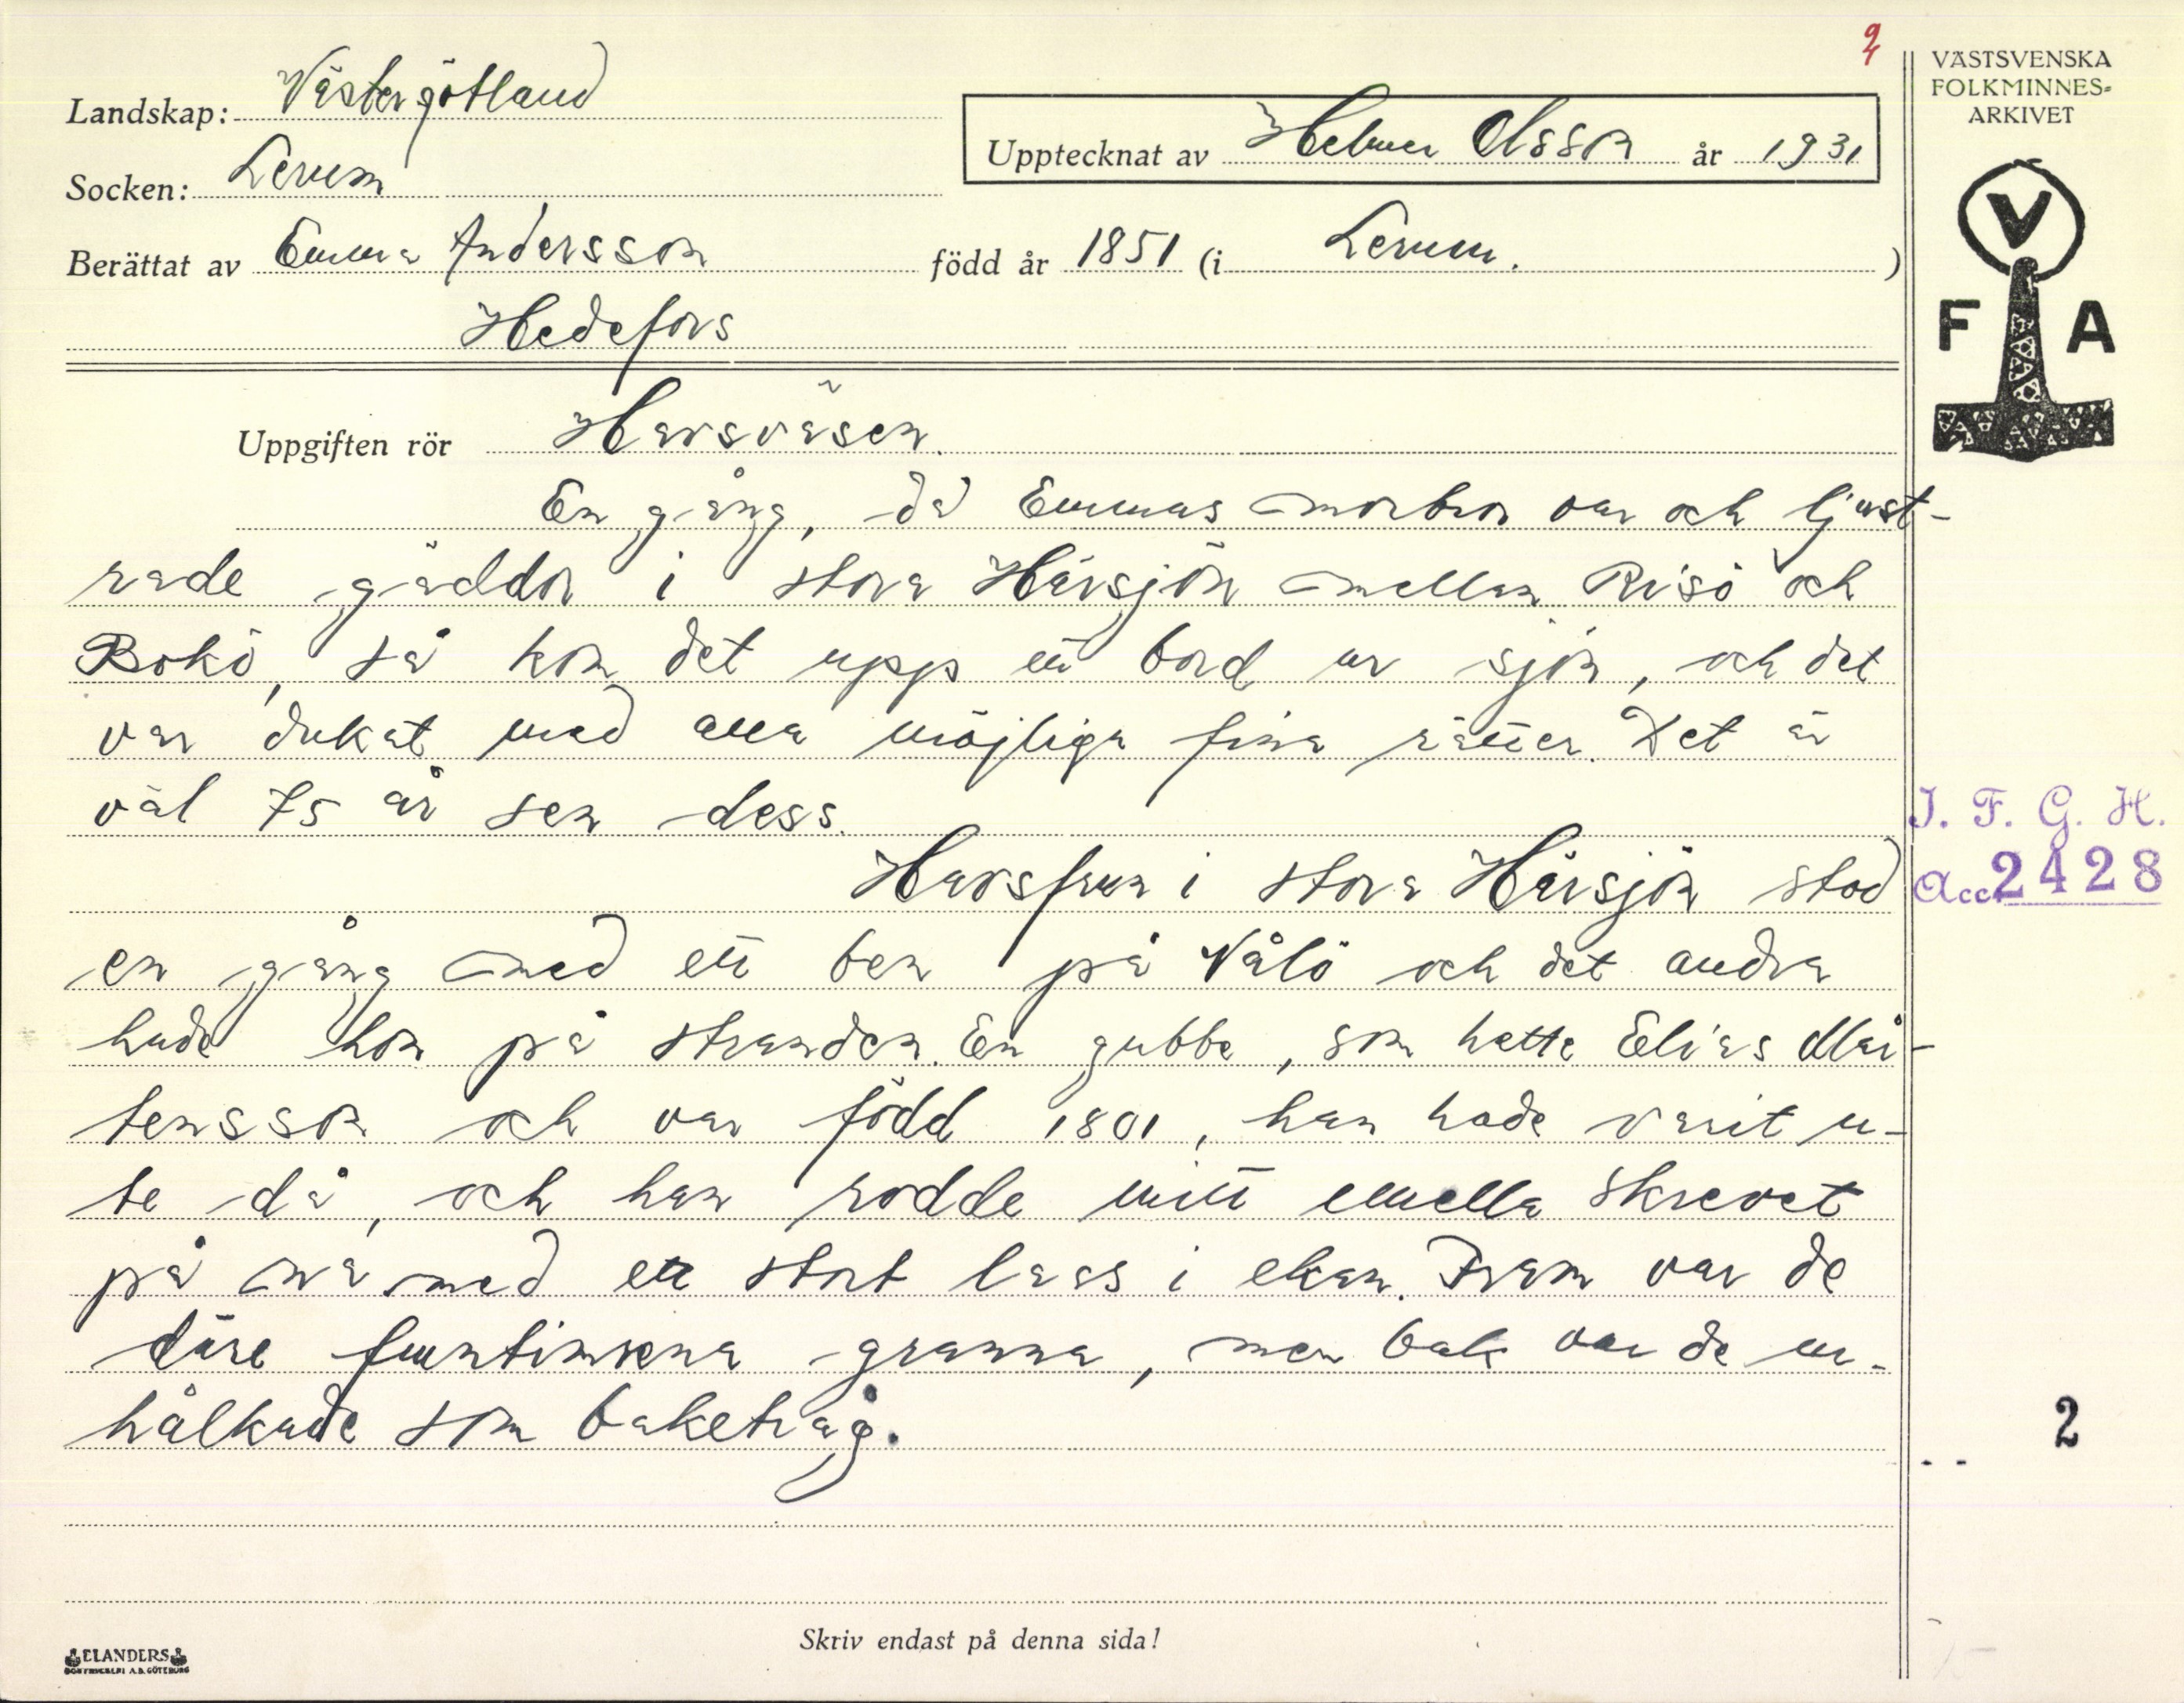 9
VÄSTSVENSKA
FOLKMINNES-
ARKIVET
V
F A
Landskap: Västergötland
Upptecknat av Helmer Olsson år 1931
Socken: Lerum
Berättat av Emma Andersson född år 1851 (i Lerum.)
Hedefors
Uppgiften rör Havsväsen.
En gång, då Emmas morbror var och ljust-
rade gäddor i stora Härsjön mellan Risö och
Bokö, så kom det upp ett bord ur sjön, och det
var dukat med alla möjliga fina rätter. Det är
väl 75 år sen dess.
I. F. G. H.
Acc 2428
Havsfrun i stora Härsjön stod
en gång med ett ben på Välö och det andra
hade hon på stranden. En gubbe, som hette Elias Mår-
tensson och var född 1801, han hade varit u-
te då, och han rodde mitt emella skrevet
på na med ett stort lass i ekan. Fram var de
däre fruntimrena granna, men bak var de ur-
hålkade som baketråg.
2
Skriv endast på denna sida!
ELANDERS
BOKTRYCKERI A.B. GÖTEBORG